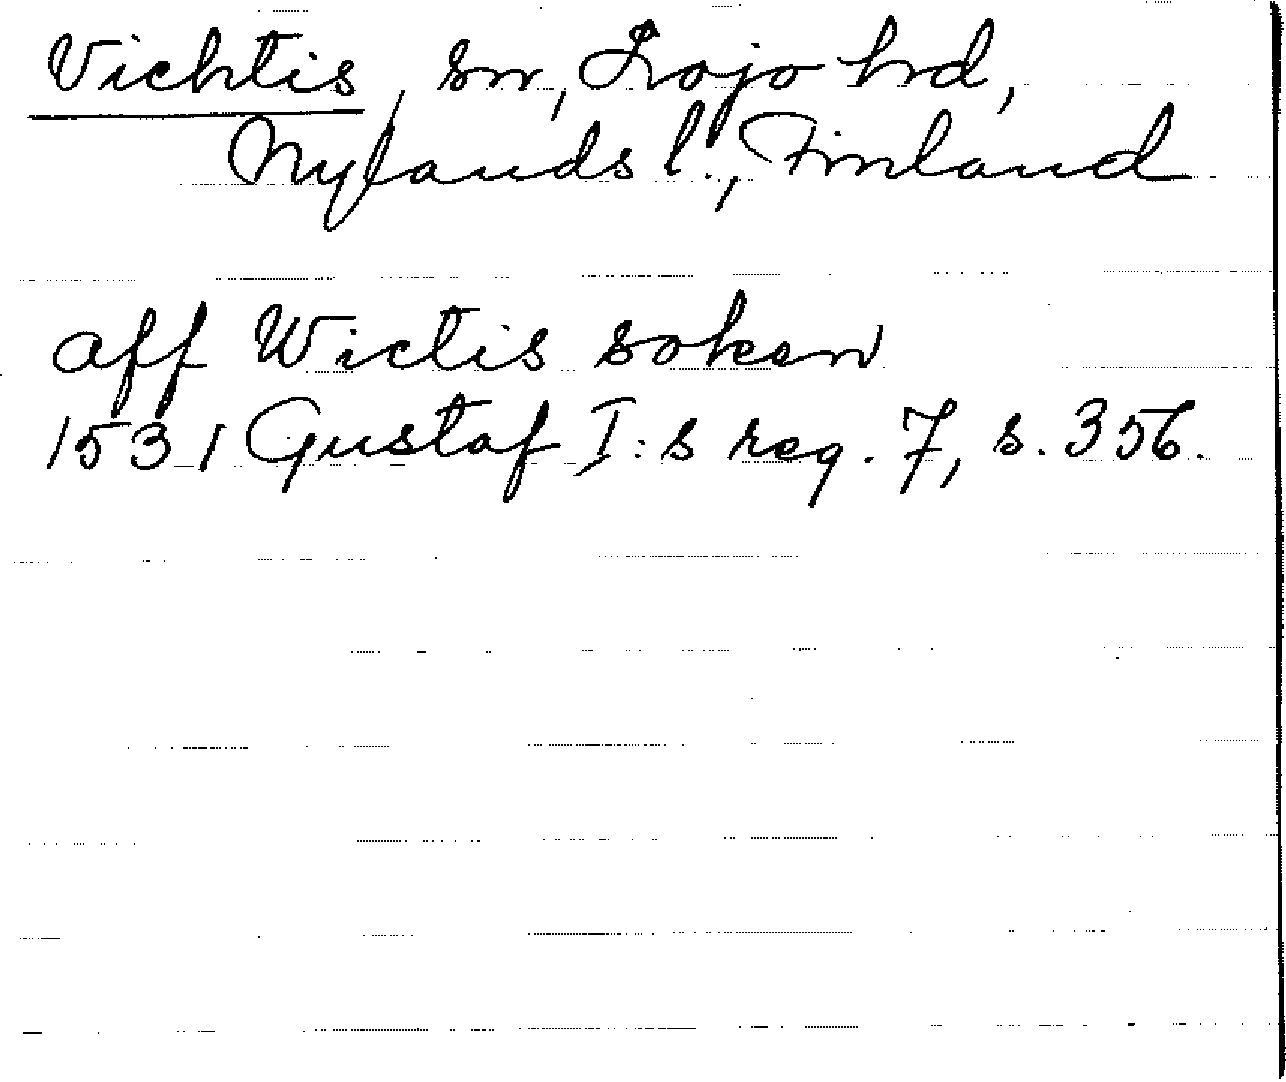 Vichtis, sn, Lojo hrd,
Nylands l., Finland
aff Wictis soken
1531 Gustaf I:s reg. 7, s. 356.